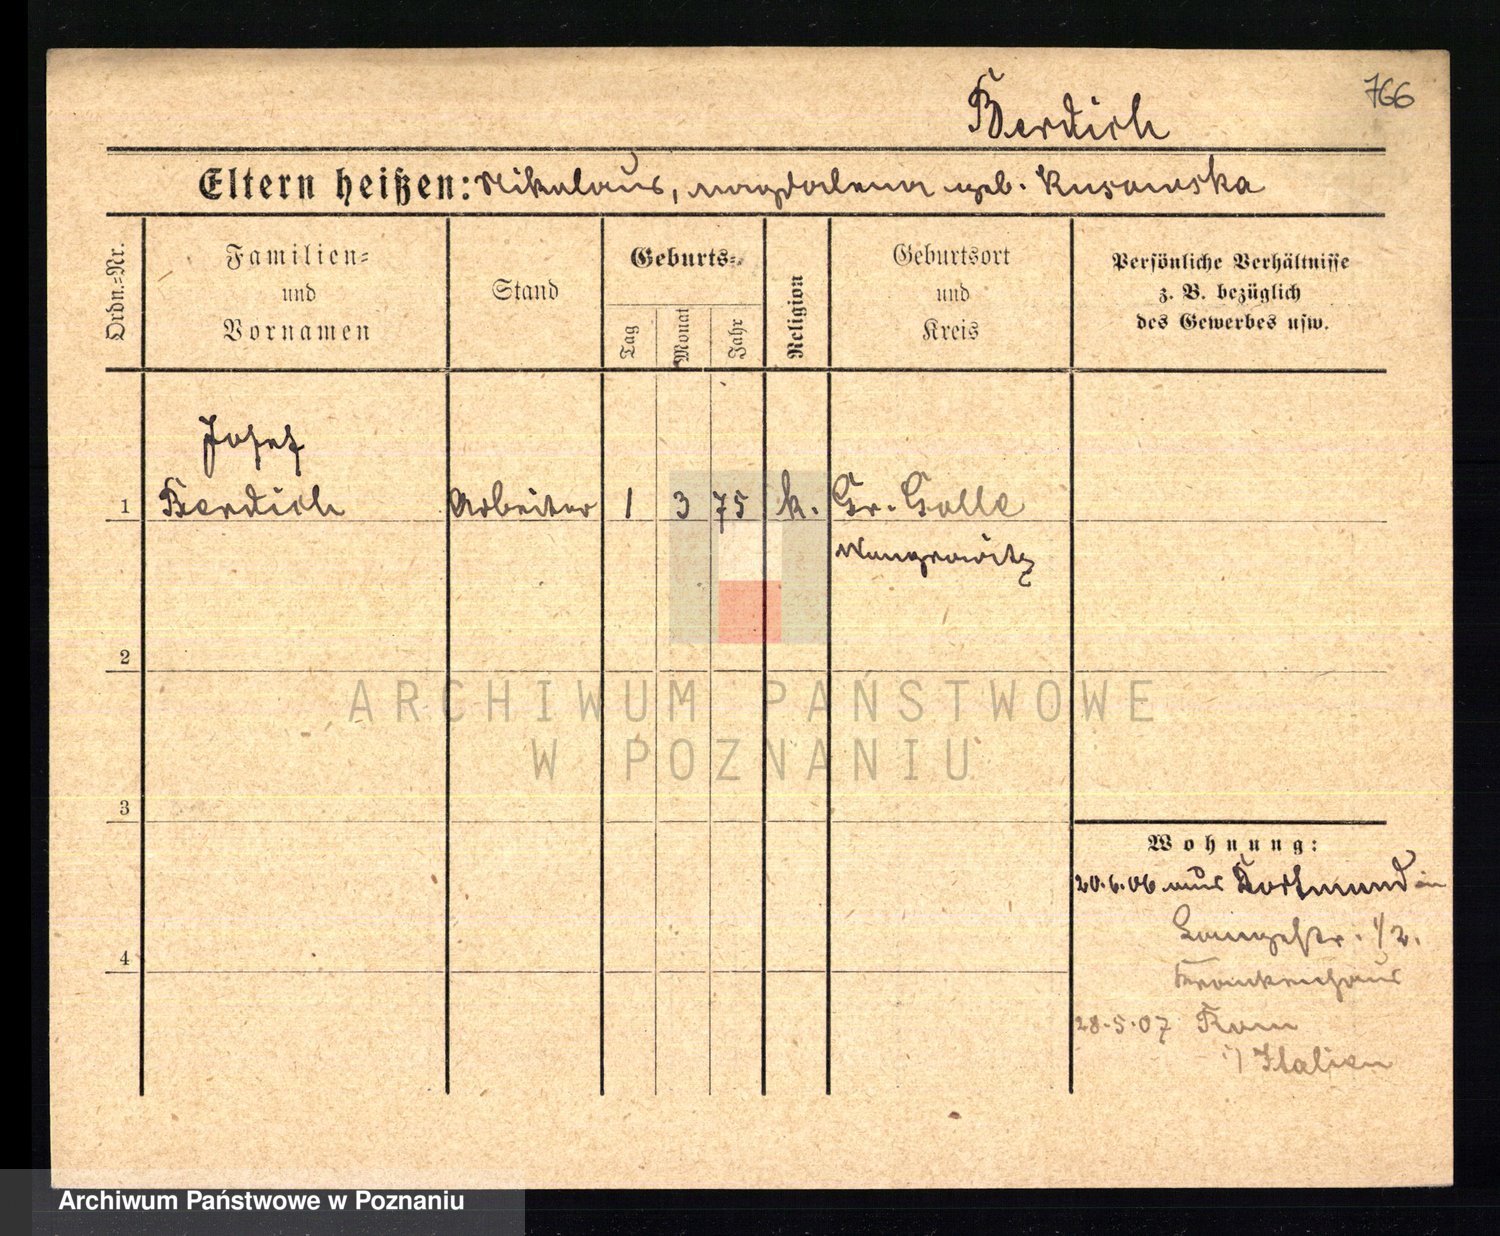 766
Berdich
Eltern heißen: Nikolaus, Magdalena geb. Kusowska
Ordn.-Nr.
Familien-
und
Vornamen
Stand
Geburts-
Tag
Monat
Jahr
Religion
Geburtsort
und
Kreis
Persönliche Verhältnisse
z. B. bezüglich
des Gewerbes usw.
Josef
1 Berdich Arbeiter 1 3 75 k. Gr. Golle
Wongrowitz
2
ARCHIWUM PAŃSTWOWE
W POZNANIU
3
Wohnung:
20.6.06 aus Dortmund in
Langestr. 1/2.
4
Krankenhaus
28.5.07 Rom
i/ Italien
Archiwum Państwowe w Poznaniu